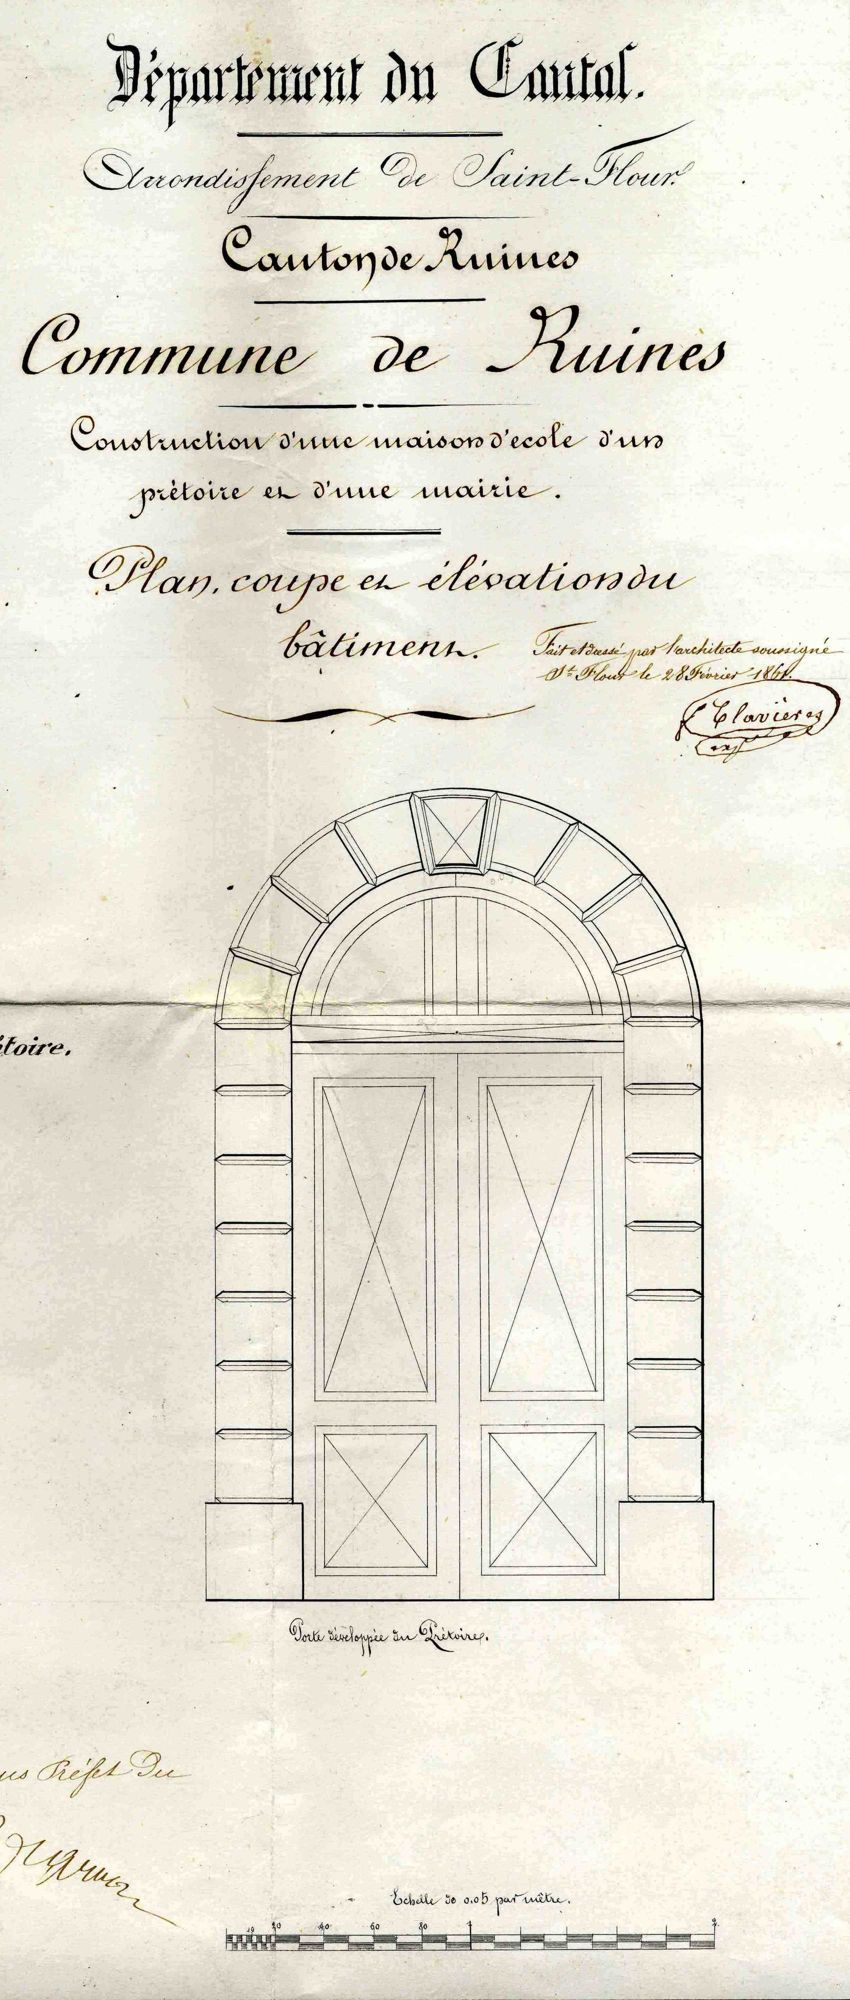 Département du Cantal.
Arrondissement de Saint-Flour.
Canton de Ruines
Commune de Ruines
Construction d'une maison d'ecole d'un
prètoire et d'une mairie.
Plan, coupe et élévation du
bâtiment.
Fait et dressé par l'architecte soussigné
St. Flour le 28 Février 186
Clavières
toire.
Porte développée du Prétoire.
Préfet Du
Echelle de 0.05 par mêtre.
20 40 60 80 1 2